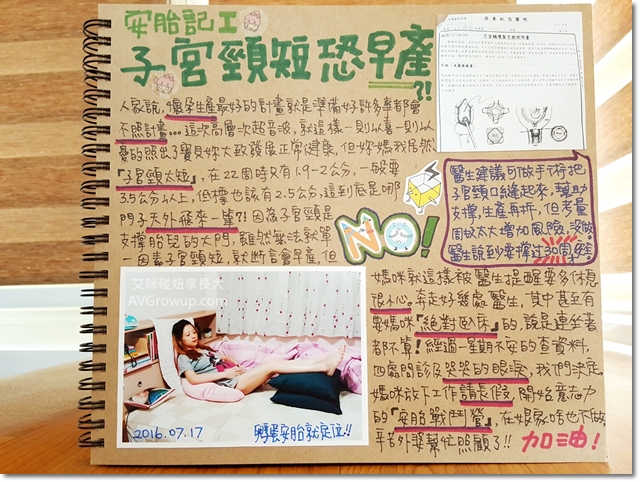 安胎記I
子宮頸短恐早產?!
人家說，懷孕生產最好的計畫就是準備好許多事都會
不照計畫...這次高層次超音波，就這樣一則以喜一則以
憂的照出了寶貝妳大致發展正常健康，但妳媽我居然
『子宮頸太短』，在22周時只有1.9-2公分，一般要
3.5公分以上，低標也該有2.5公分，這到底是哪
門子天外飛來一筆?!因為子宮頸是
支撐胎兒的大門，雖然無法就單
一因素子宮頸短，就斷言會早產，但
NO!
醫生建議可做手術把
子宮頸口縫起來，幫助
支撐，生產再拆，但考量
周數太大增加風險，沒做
醫生說到要撐過30周
媽咪就這樣被醫生提醒要多休息
很小心。奔走好幾處醫生，其中甚至有
要媽咪『絕對臥床』的，說是連坐著
都不算!經過一星期不安的查資料，
四處問診及哭哭的眼淚，我們決定
媽咪放下工作請長假，開始意志力
的『安胎戰鬥營』，在娘家啥也不做，
辛苦外婆幫忙照顧了!! 加油!
艾咪碰妞享長大
AVGrowup.com
2016.07.17 鴨蛋安胎就定位!!